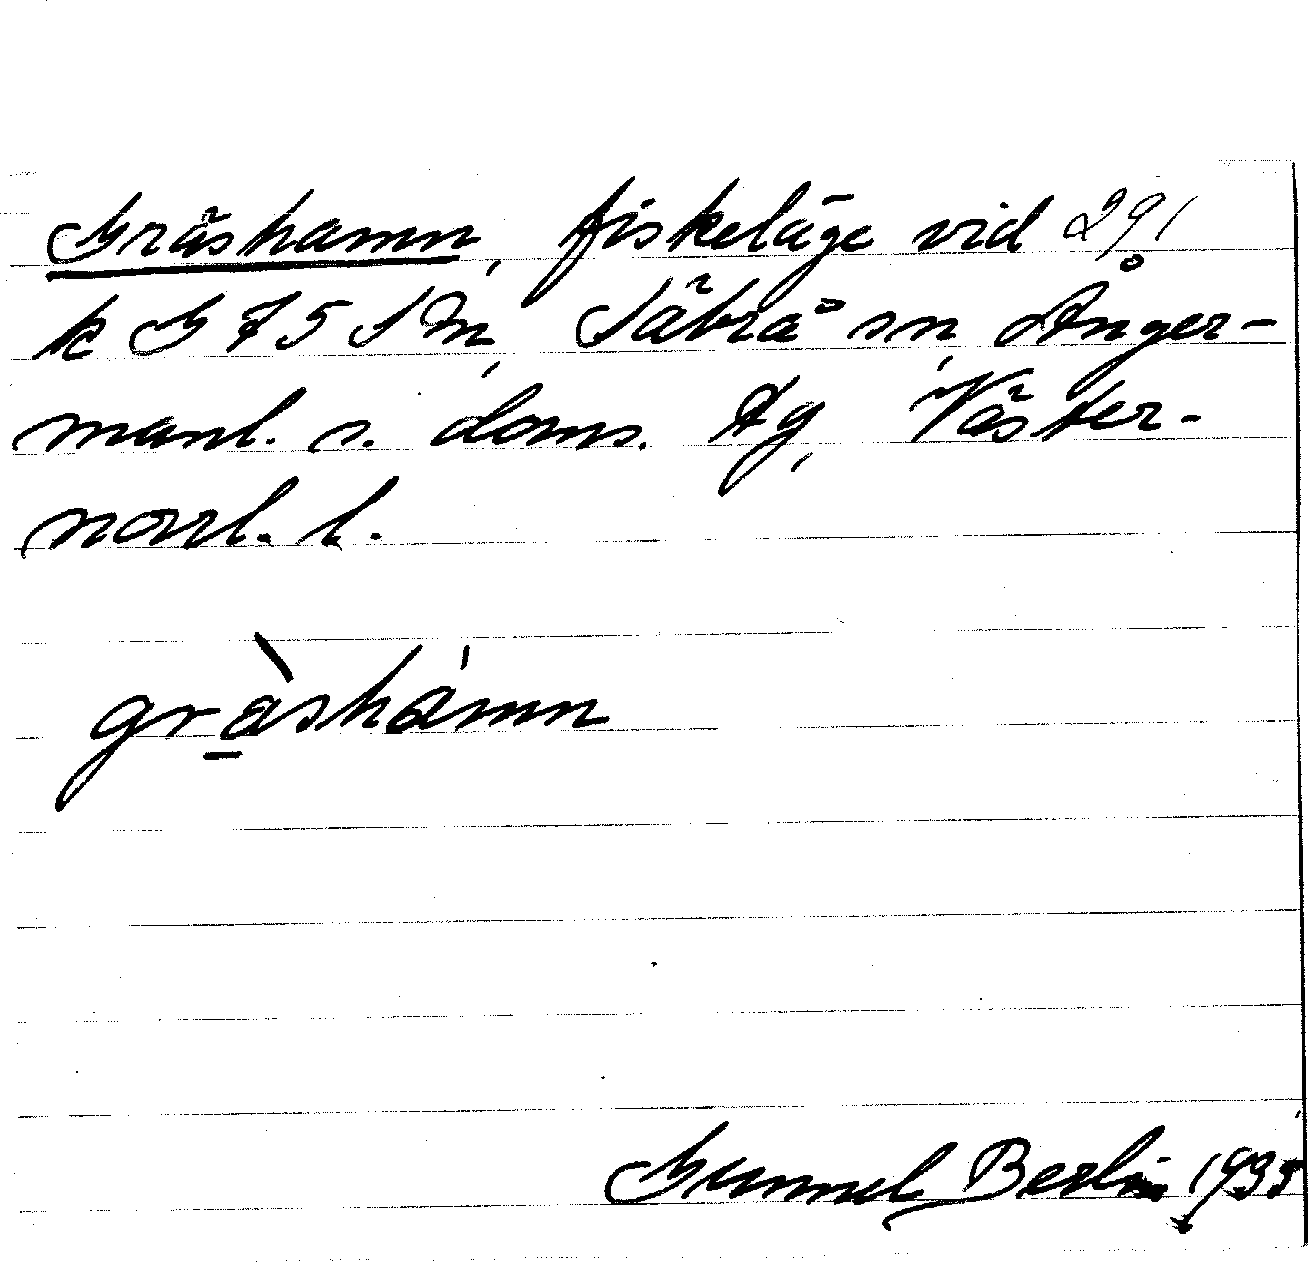 Gräshamn, fiskeläge vid 291
k G 75 S m, Säbrå sn, Ånger-
manl. s. doms. Ag, Väster-
norrl. l.
gràshámn
Gunnel Berlin 1935